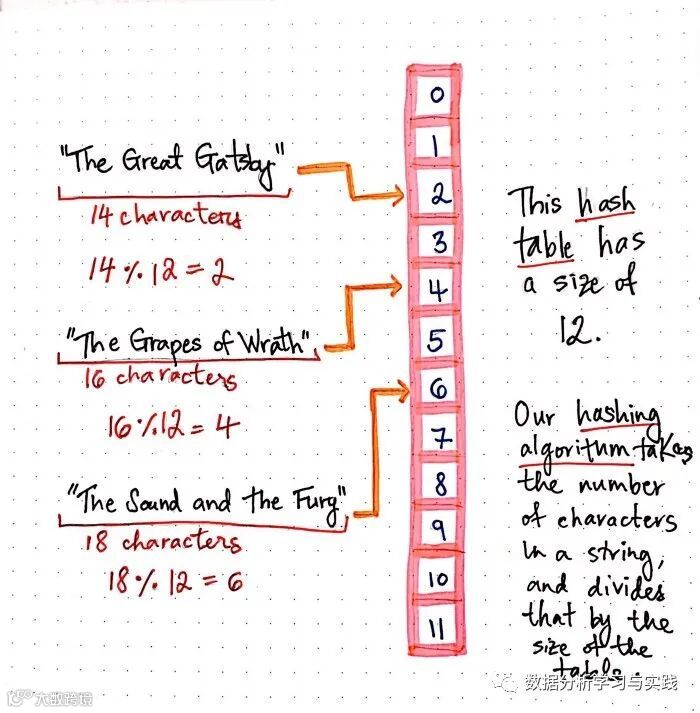 "The Great Gatsby"
14 characters
14 % 12 = 2
"The Grapes of Wrath"
16 characters
16 % 12 = 4
"The Sound and the Fury"
18 characters
18 % 12 = 6
0
1
2
3
4
5
6
7
8
9
10
11
This hash
table has
a size of
12.
Our hashing
algoritum takes
the number
of characters
in a string,
and divides
that by the
size of the
table.
数据分析学习与实践
大数跨境